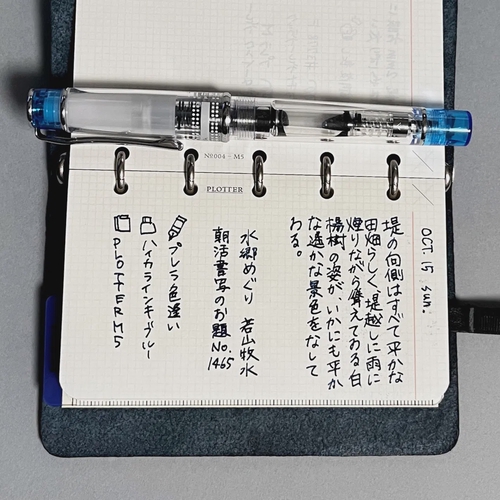 Nº004 - M5
PLOTTER
OCT. 15 sun.
堤の向側はすべて平かな
田畑らしく、堤越しに雨に
煙りながら聳えてゐる白
楊樹の姿が、いかにも平か
な遙かな景色をなして
ゐる。
水郷めぐり 若山牧水
朝活書写のお題 No.1465
プレラ色違い
ハイカラインキブルー
PLOTTER M5